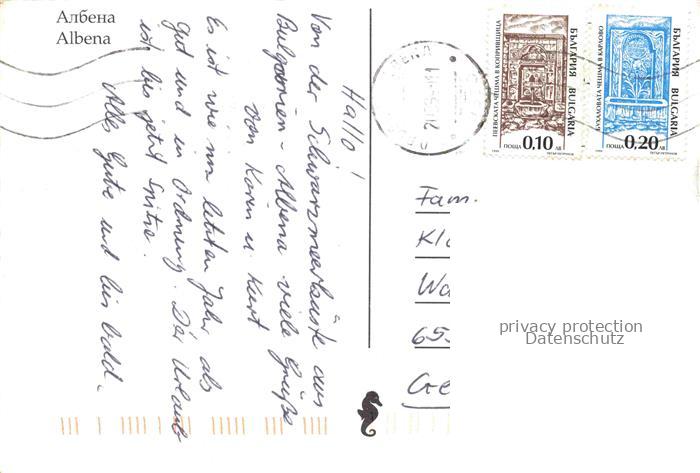 Албена
Albena
Hallo!
Von der Schwarzmeerküste aus
Bulgarien - Albena viele Grüße
von Karin u. Kurt
Es ist wie im letzten Jahr alles
gut und in Ordnung. Der Urlaub
ist bis jetzt Spitze.
Alles Gute und bis bald.
БЪЛГАРИЯ BULGARIA
ПОЩА 0,10 ЛВ
БЪЛГАРИЯ BULGARIA
ПОЩА 0,20 ЛВ
Fam.
Kl
Wa
65
Ge
privacy protection
Datenschutz